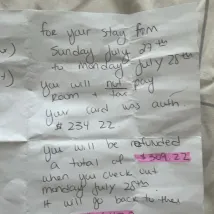 for your stay from
Sunday July 27th
to monday July 28th
you will not pay
room + tax
your card was auth
$ 234 22
you will be refunded
a total of $309.22
when you check out
monday July 28th.
it will go back to the